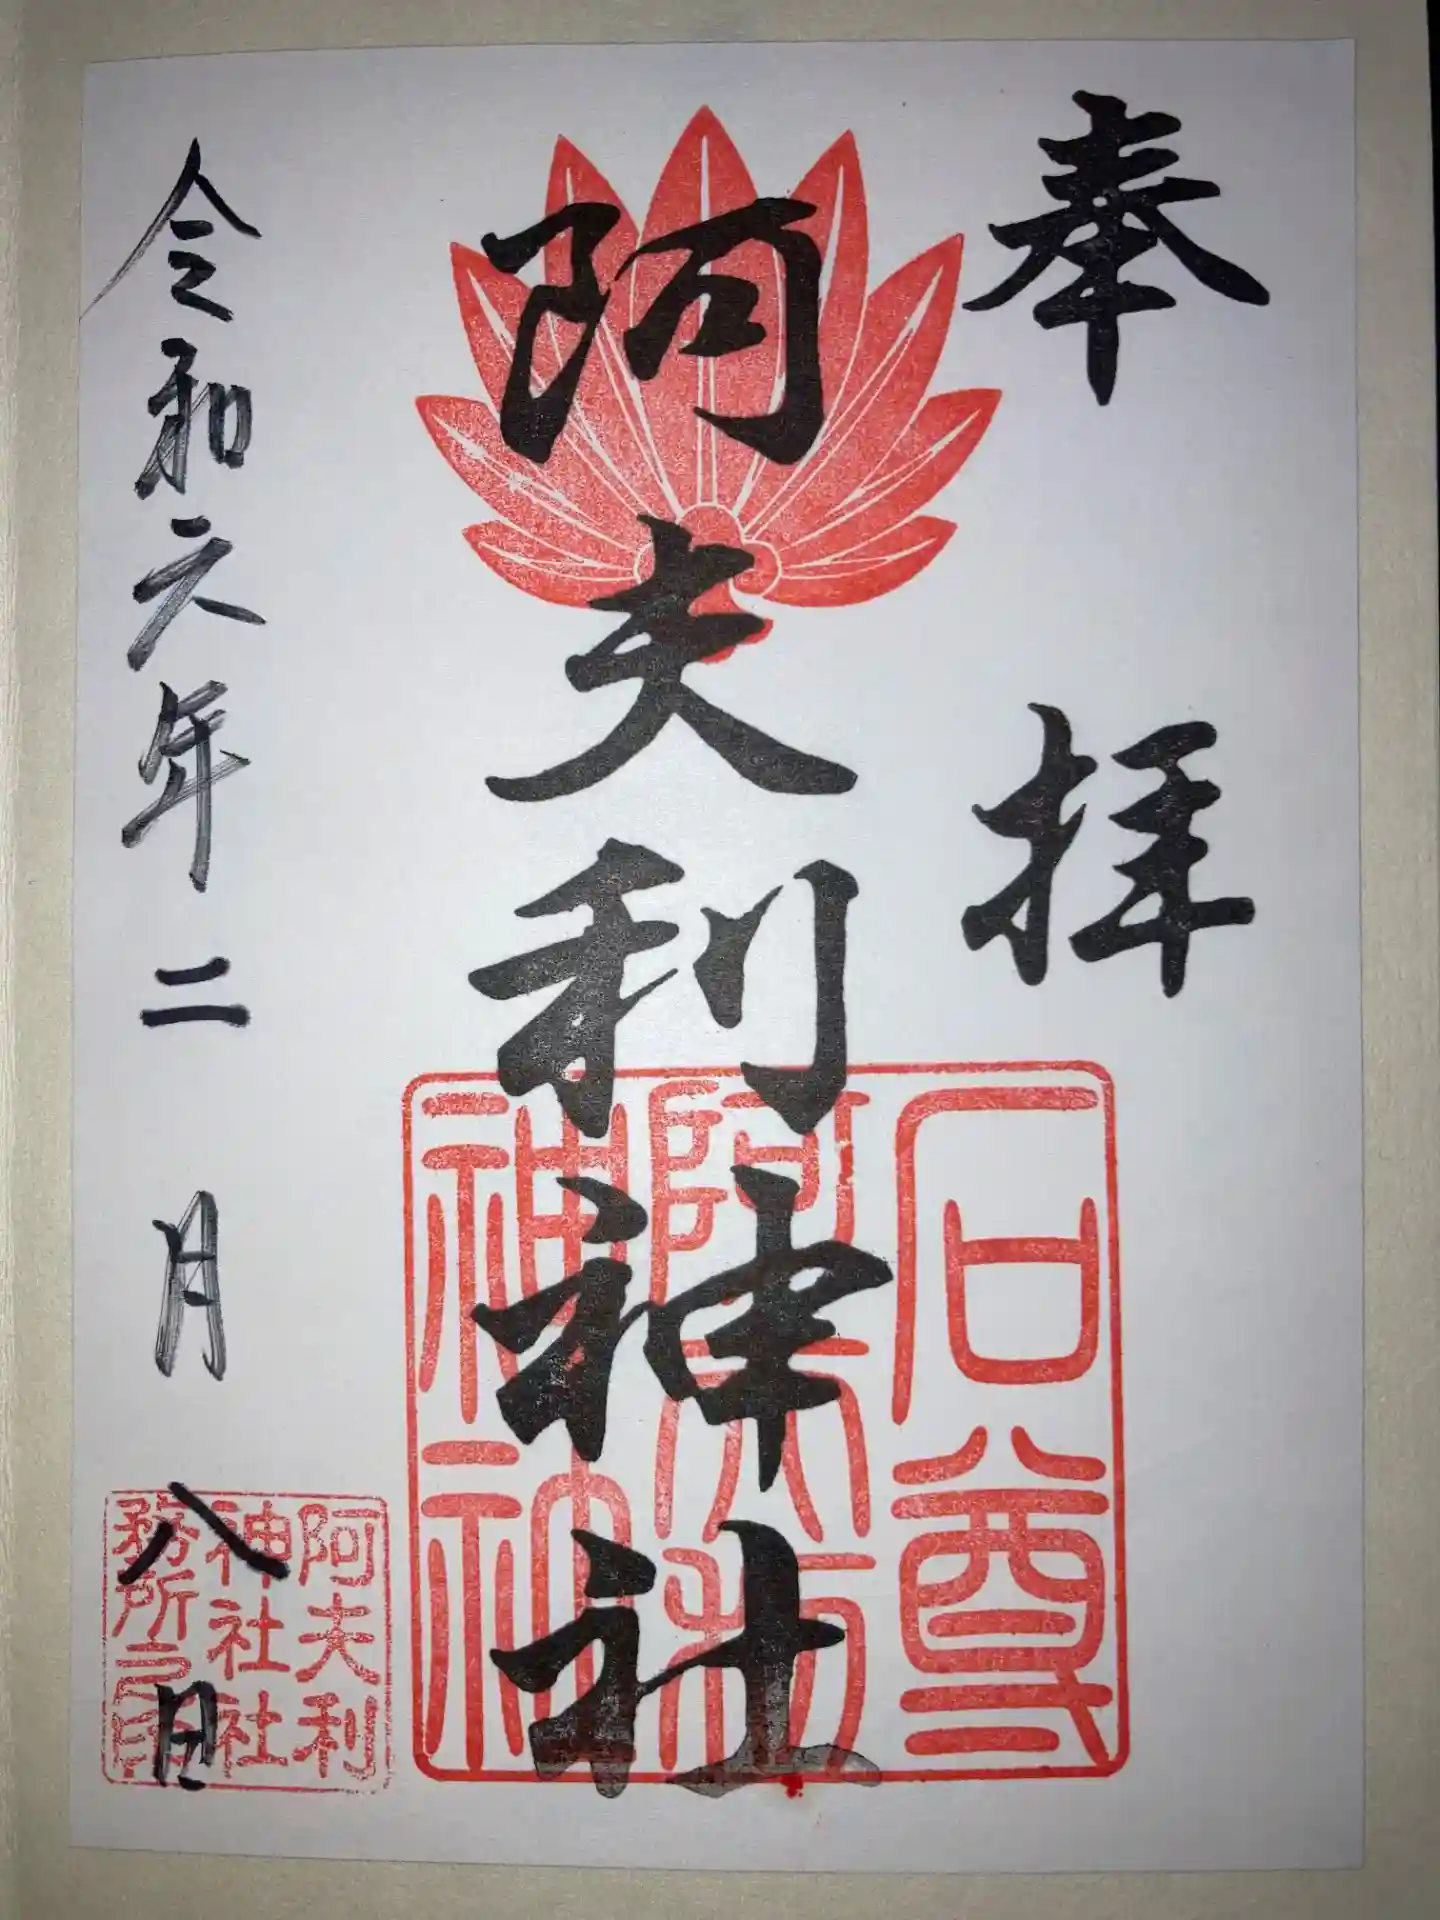 奉拝
阿夫利神社
石尊
阿夫利
神社
令和六年二月八日
阿夫利
神社社
務所之印